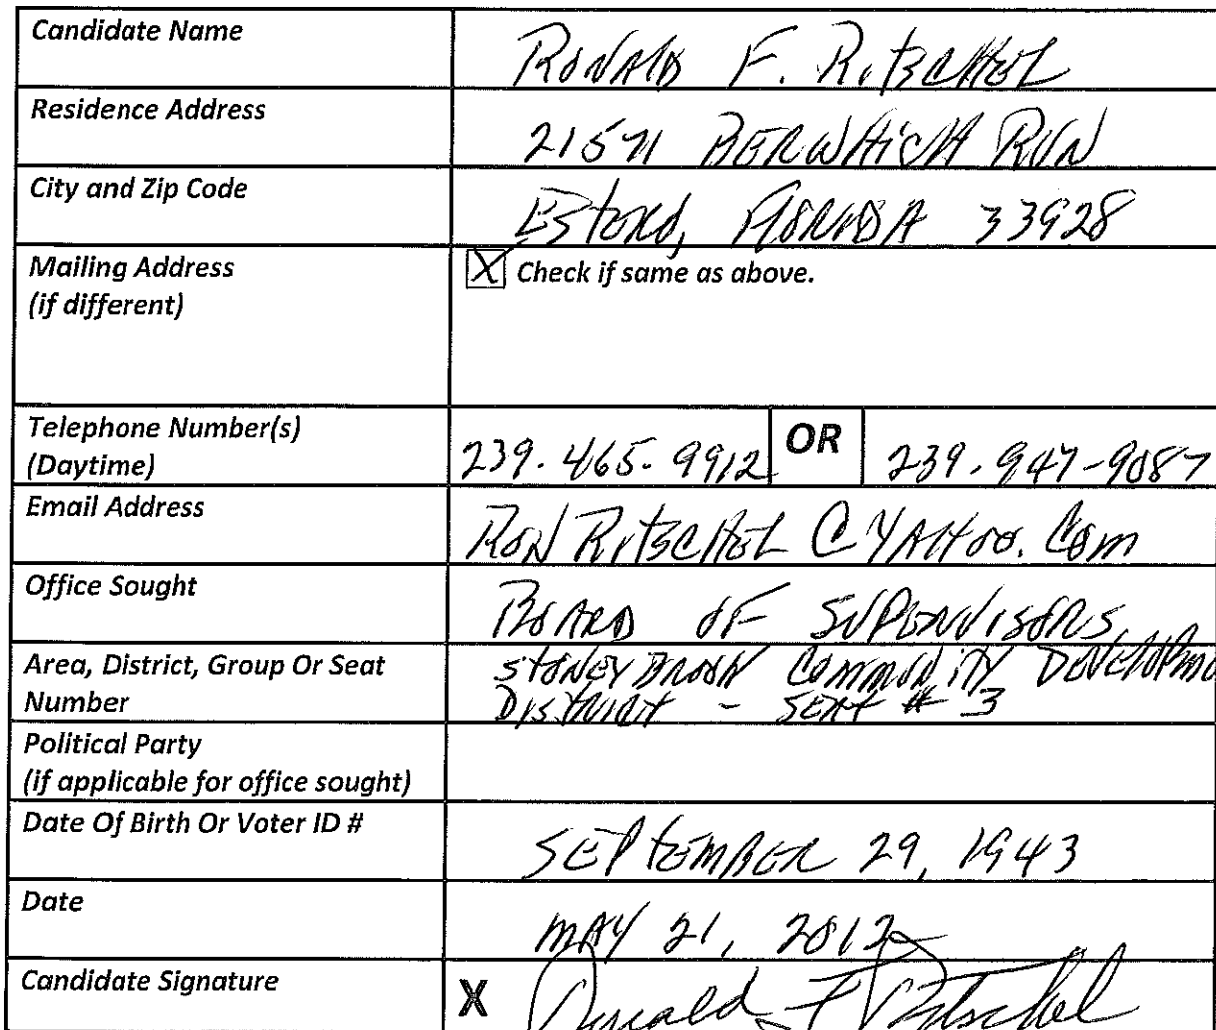 Candidate Name RONALD F. RITSCHEL
Residence Address 21571 BERWHICH RUN
City and Zip Code ESTERO, FLORIDA 33928
Mailing Address
(if different)
X Check if same as above.
Telephone Number(s)
(Daytime)
239.465.9912 OR 239.947-9087
Email Address RON RITSCHEL @ YAHOO.COM
Office Sought BOARD OF SUPERVISORS,
Area, District, Group Or Seat
Number
STONEYBROOK COMMUNITY DEVELOPME
DISTRICT - SEAT # 3
Political Party
(if applicable for office sought)
Date Of Birth Or Voter ID # SEPTEMBER 29, 1943
Date MAY 21, 2012
Candidate Signature X Ronald F Ritschel